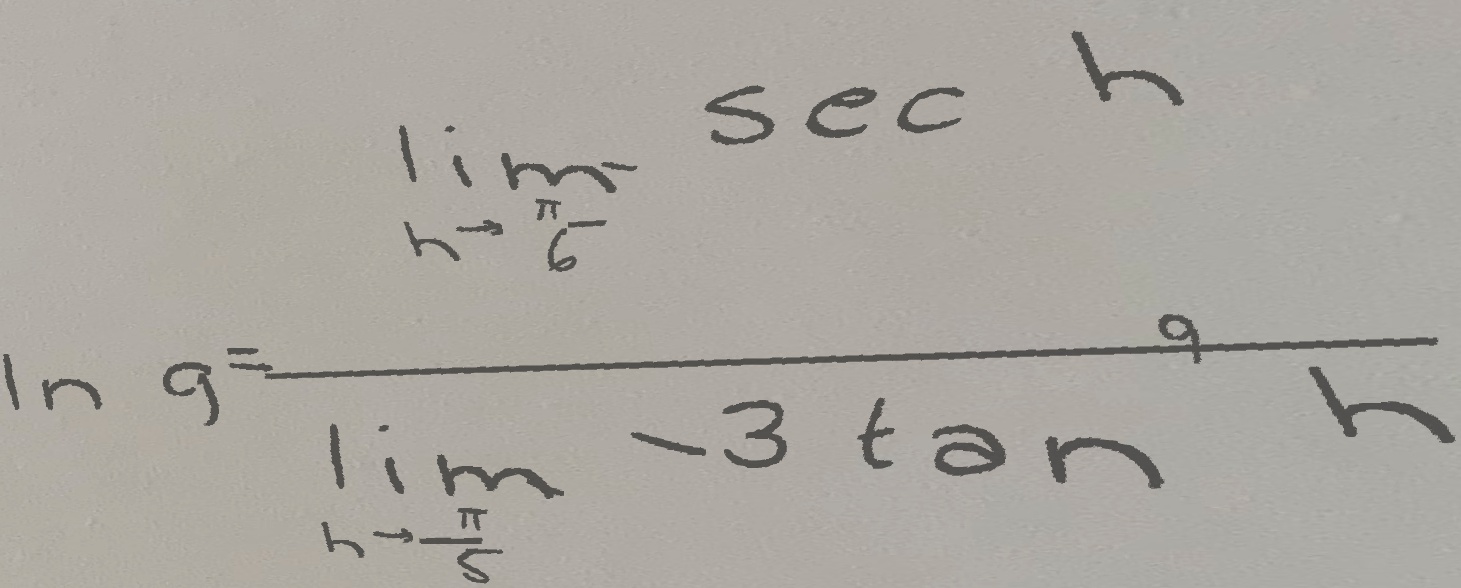 \ln g = \frac{\lim_{h \to \frac{\pi}{6}} \sec h}{\lim_{h \to \frac{\pi}{5}} -3 \tan^{9} h}